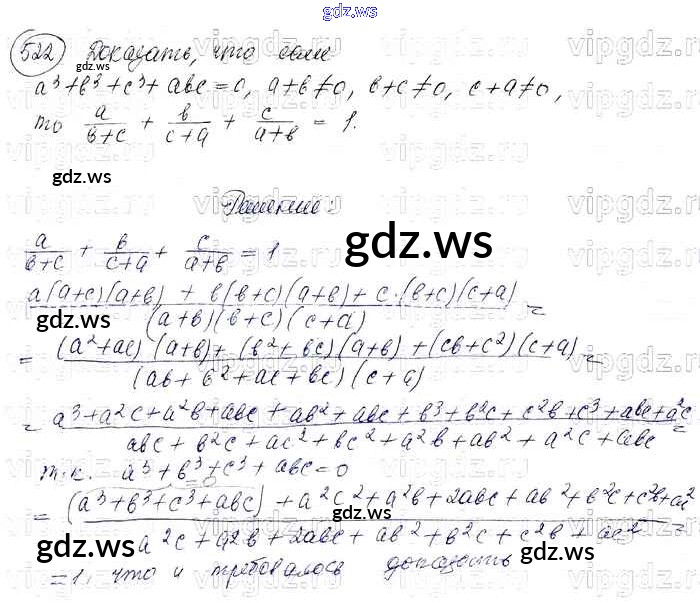 gdz.ws
522 Доказать, что если
a³+b³+c³+abc=0, a+b≠0, b+c≠0, c+a≠0,
то a/(b+c) + b/(c+a) + c/(a+b) = 1.
gdz.ws
Решение:
a/(b+c) + b/(c+a) + c/(a+b) = 1
gdz.ws
(a(a+c)(a+b) + b(b+c)(a+b) + c·(b+c)(c+a))/((a+b)(b+c)(c+a)) =
gdz.ws
= ((a²+ac)(a+b) + (b²+bc)(a+b) + (cb+c²)(c+a))/((ab+b²+ac+bc)(c+a)) =
= (a³+a²c+a²b+abc+ab²+abc+b³+b²c+c²b+c³+abc+a²c)/(abc+b²c+ac²+bc²+a²b+ab²+a²c+abc) =
т.к. a³+b³+c³+abc=0
=0
= ((a³+b³+c³+abc)+a²c²+a²b+2abc+ab²+b²c+c²b+ac²)/(a²c+a²b+2abc+ab²+b²c+c²b+ac²) =
gdz.ws
gdz.ws
=1, что и требовалось доказать
gdz.ws
vipgdz.ru